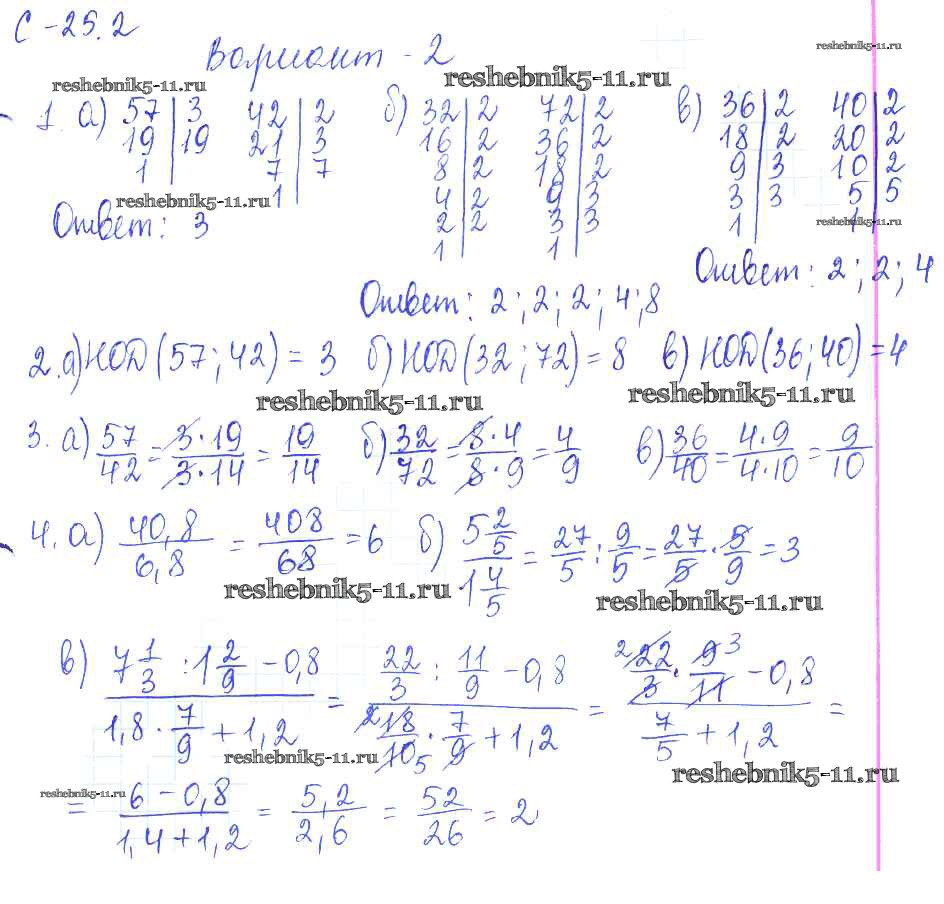 С-25.2
Вариант-2
reshebnik5-11.ru reshebnik5-11.ru reshebnik5-11.ru
1. а) 57 | 3 42 | 2 б) 32 | 2 72 | 2 в) 36 | 2 40 | 2
19 | 19 21 | 3 16 | 2 36 | 2 18 | 2 20 | 2
1 | 7 | 7 8 | 2 18 | 2 9 | 3 10 | 2
1 | 4 | 2 9 | 3 3 | 3 5 | 5
2 | 2 3 | 3 1 | 1 |
1 | 1 |
reshebnik5-11.ru reshebnik5-11.ru
Ответ: 3
Ответ: 2; 2; 2; 4; 8
Ответ: 2; 2; 4
2. а) НОД(57; 42) = 3 б) НОД(32; 72) = 8 в) НОД(36; 40) = 4
reshebnik5-11.ru reshebnik5-11.ru
3. а) 57/42 = 3·19/3·14 = 19/14 б) 32/72 = 8·4/8·9 = 4/9 в) 36/40 = 4·9/4·10 = 9/10
4. а) 40,8/6,8 = 408/68 = 6 б) 5 2/5 / 1 4/5 = 27/5 : 9/5 = 27/5 · 5/9 = 3
reshebnik5-11.ru reshebnik5-11.ru
в) (7 1/3 : 1 2/9 - 0,8)/(1,8 · 7/9 + 1,2) = (22/3 : 11/9 - 0,8)/(2 18/10 5 · 7/9 + 1,2) = (2 22/3 · 9 3/11 - 0,8)/(7/5 + 1,2) =
reshebnik5-11.ru reshebnik5-11.ru
reshebnik5-11.ru
= (6 - 0,8)/(1,4 + 1,2) = 5,2/2,6 = 52/26 = 2